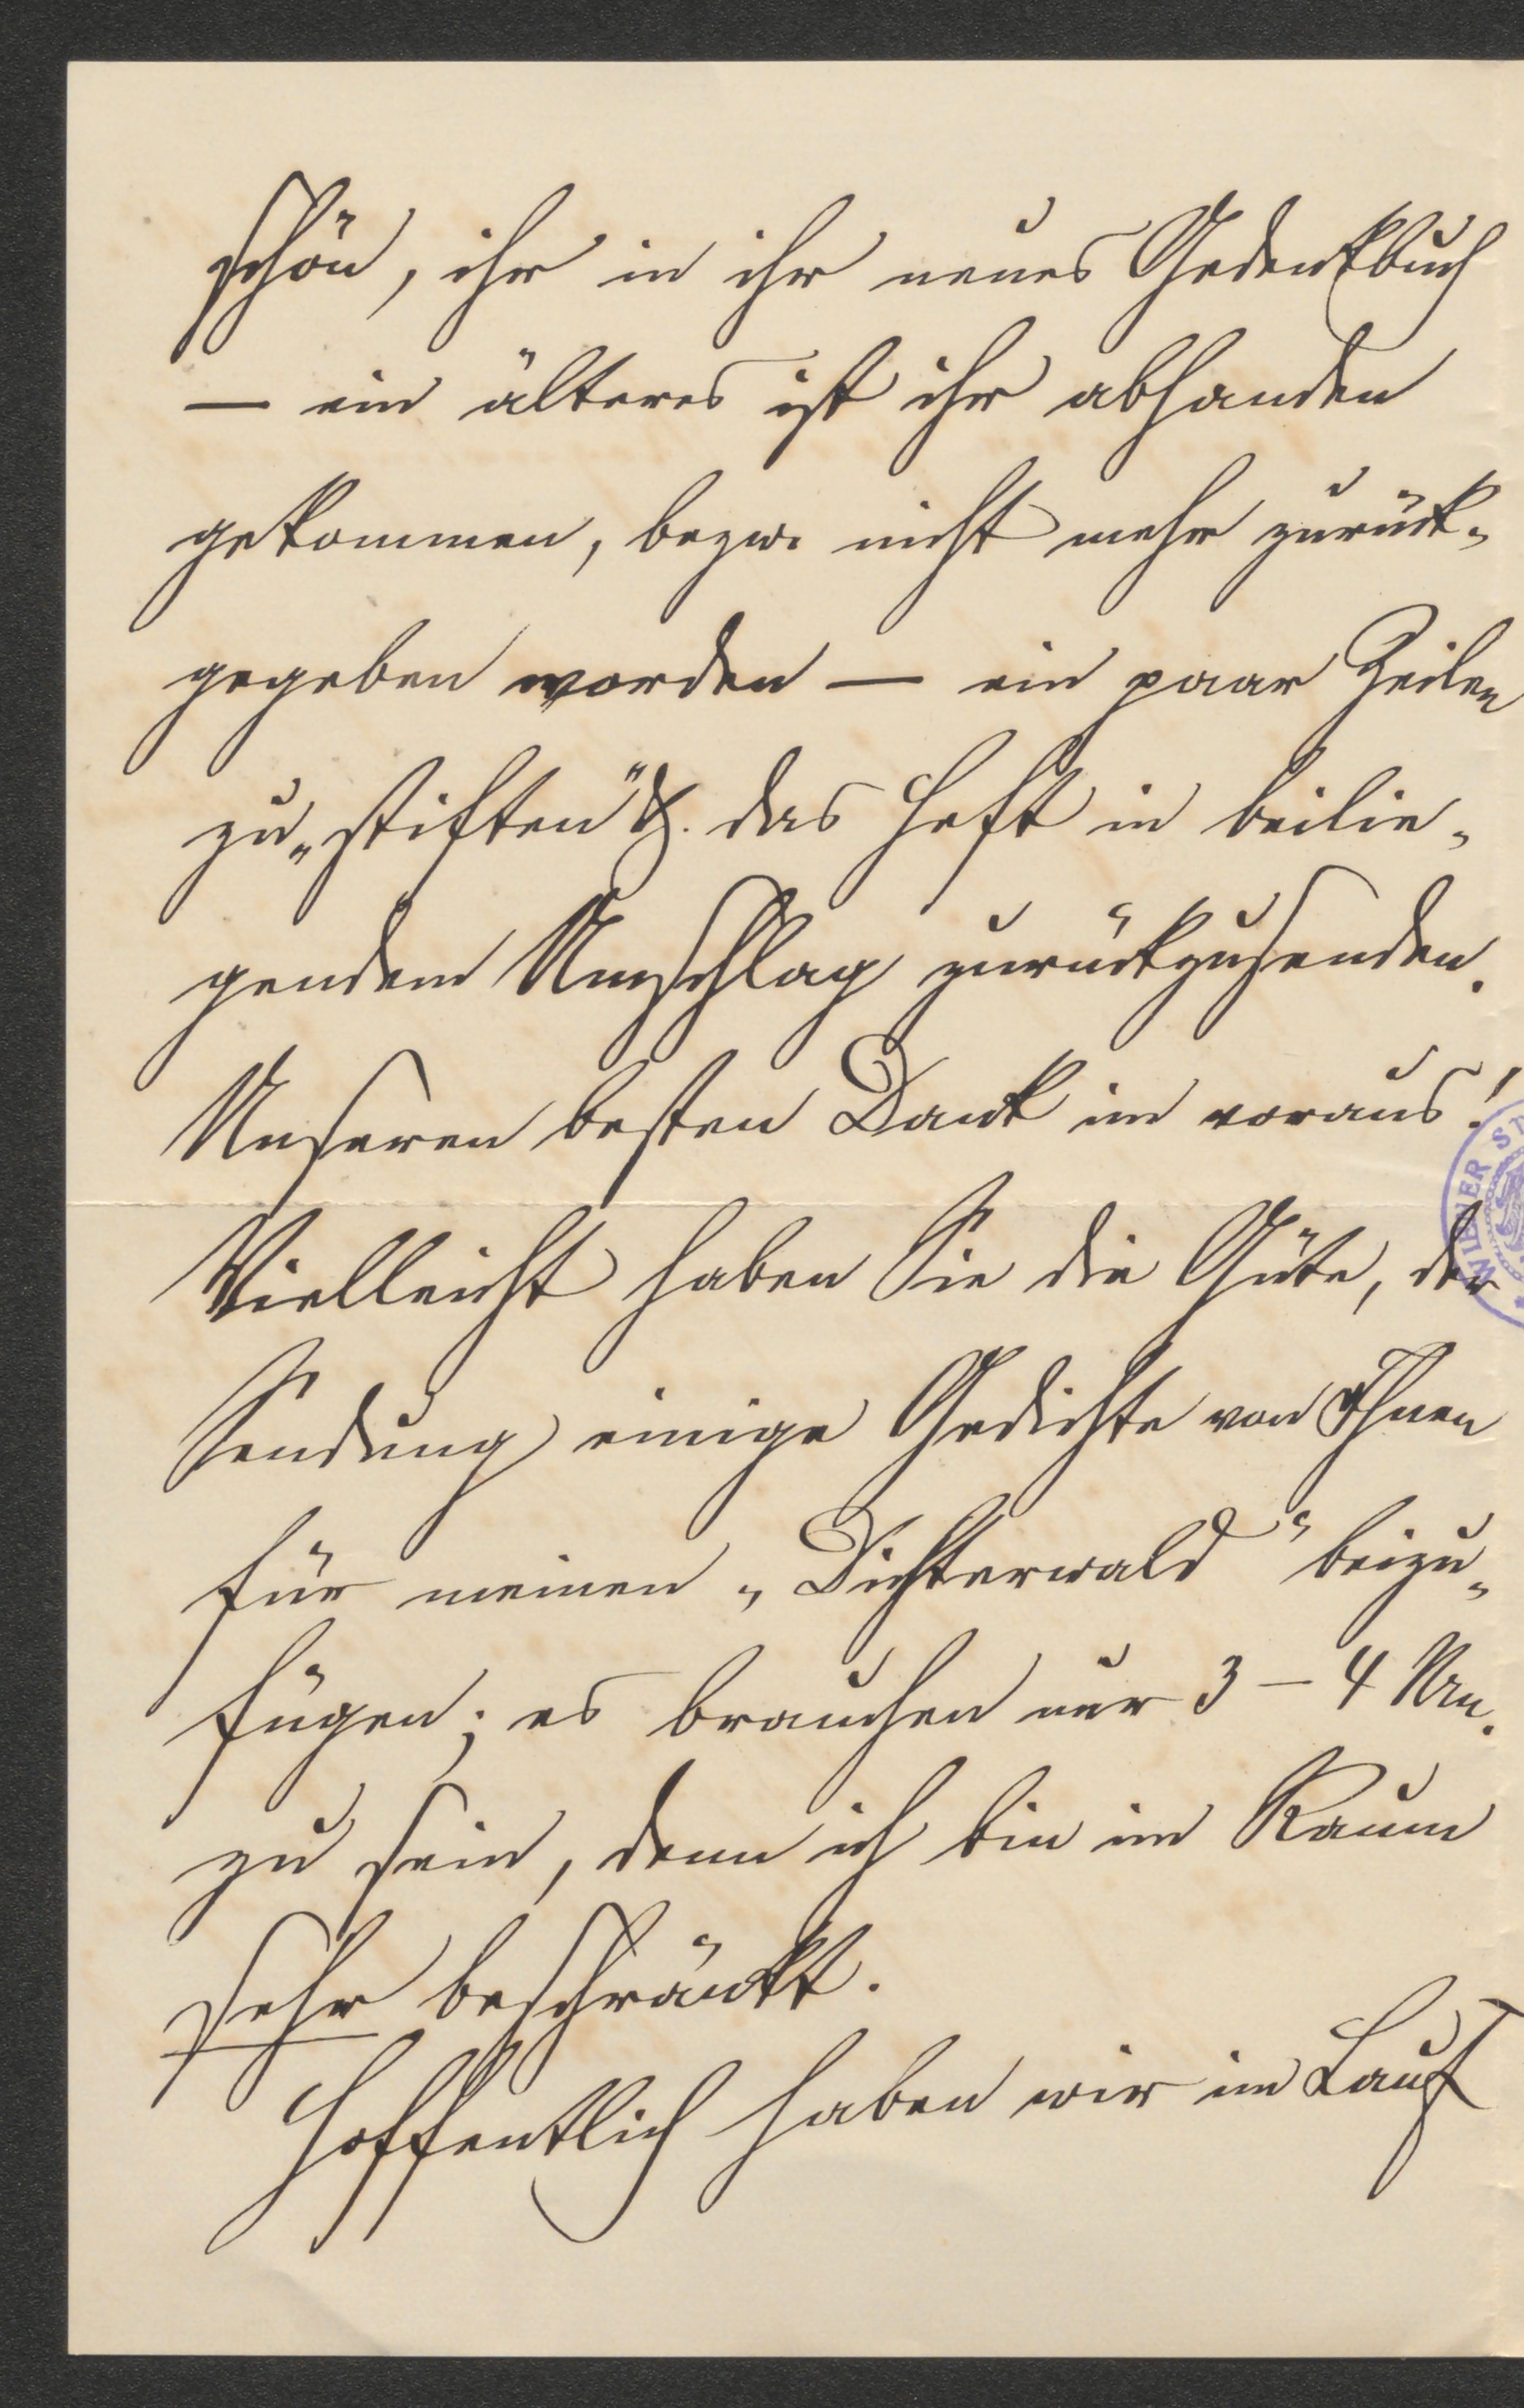 schön, ihr in ihr neues Gedenkbuch
— ein älteres ist ihr abhanden
gekommen, bezw. nicht mehr zurück-
gegeben worden — ein paar Zeilen
zu „stiften“ &. das Heft in beilie-
gendem Umschlag zurückzusenden.
Unseren besten Dank im voraus!
Vielleicht haben Sie die Güte, der
Sendung einige Gedichte von Ihnen
für meinen „Dichterwald“ beizu-
fügen; es brauchen nur 3–4 Nrn.
zu sein, denn ich bin im Raum
sehr beschränkt.
Hoffentlich haben wir im Lauf
WIENER